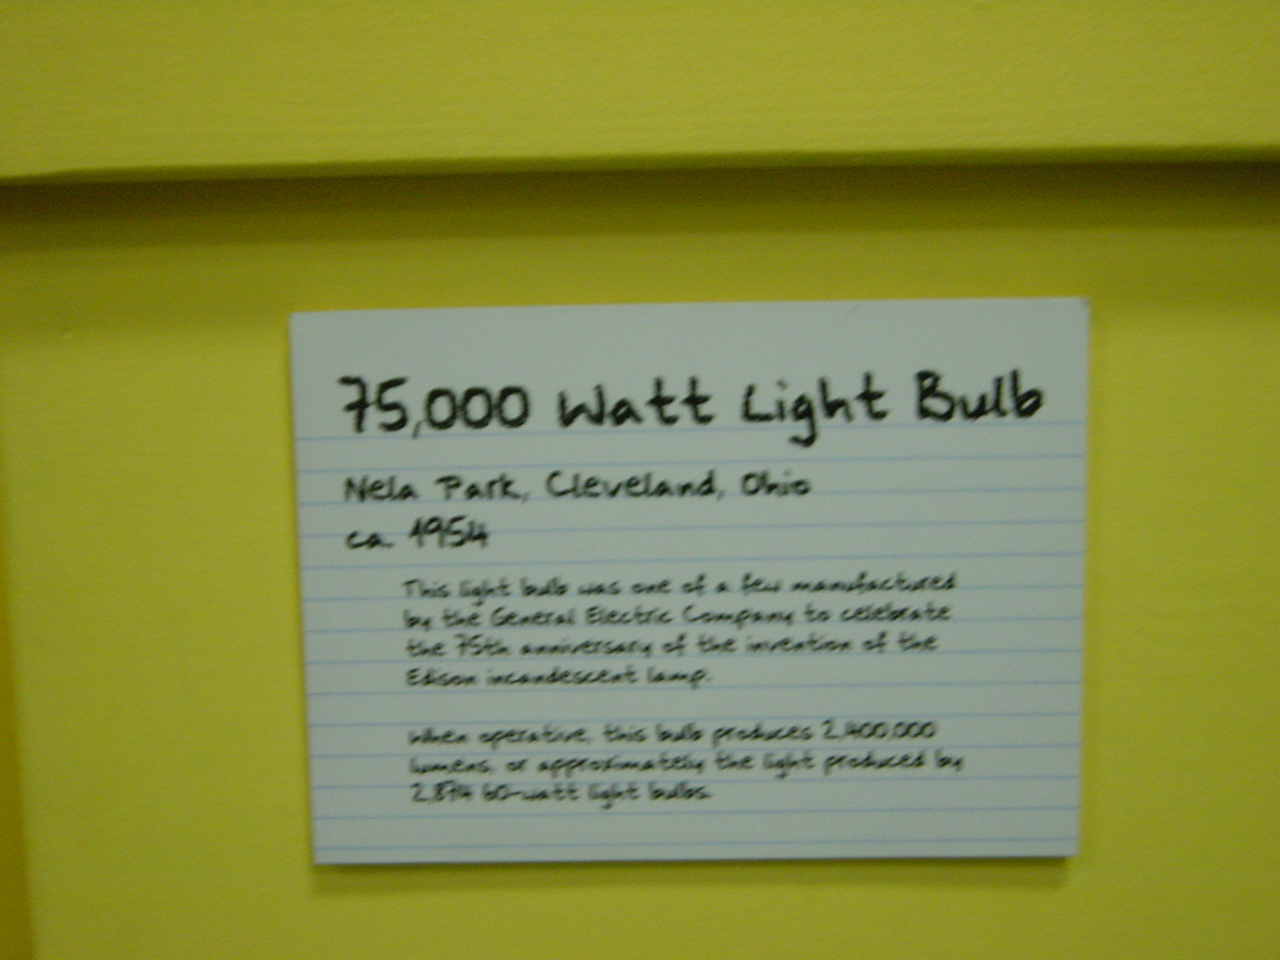 75,000 Watt Light Bulb
Nela Park, Cleveland, Ohio
ca. 1954
This light bulb was one of a few manufactured
by the General Electric Company to celebrate
the 75th anniversary of the invention of the
Edison incandescent lamp.
When operative, this bulb produces 2,400,000
lumens, or approximately the light produced by
2,874 60-watt light bulbs.